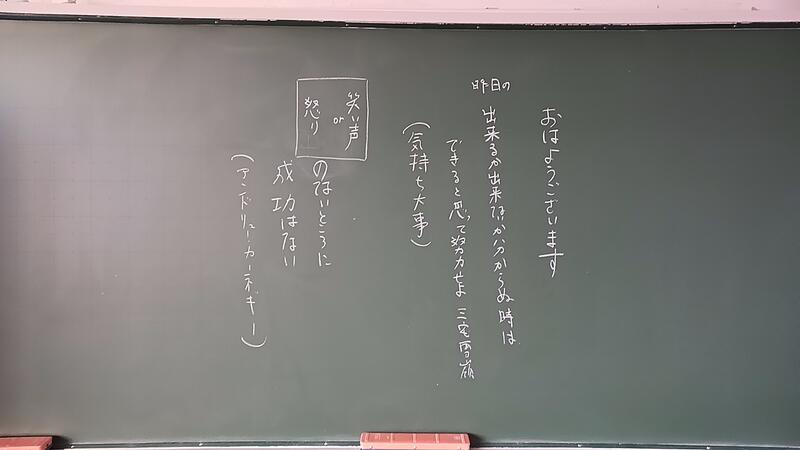 おはようございます
昨日の
出来るか出来ないか分からぬ時は
できると思って努力せよ 三宅雪嶺
(気持ち大事)
笑い声
or
怒り
のないところに
成功はない
(アンドリュー・カーネギー)